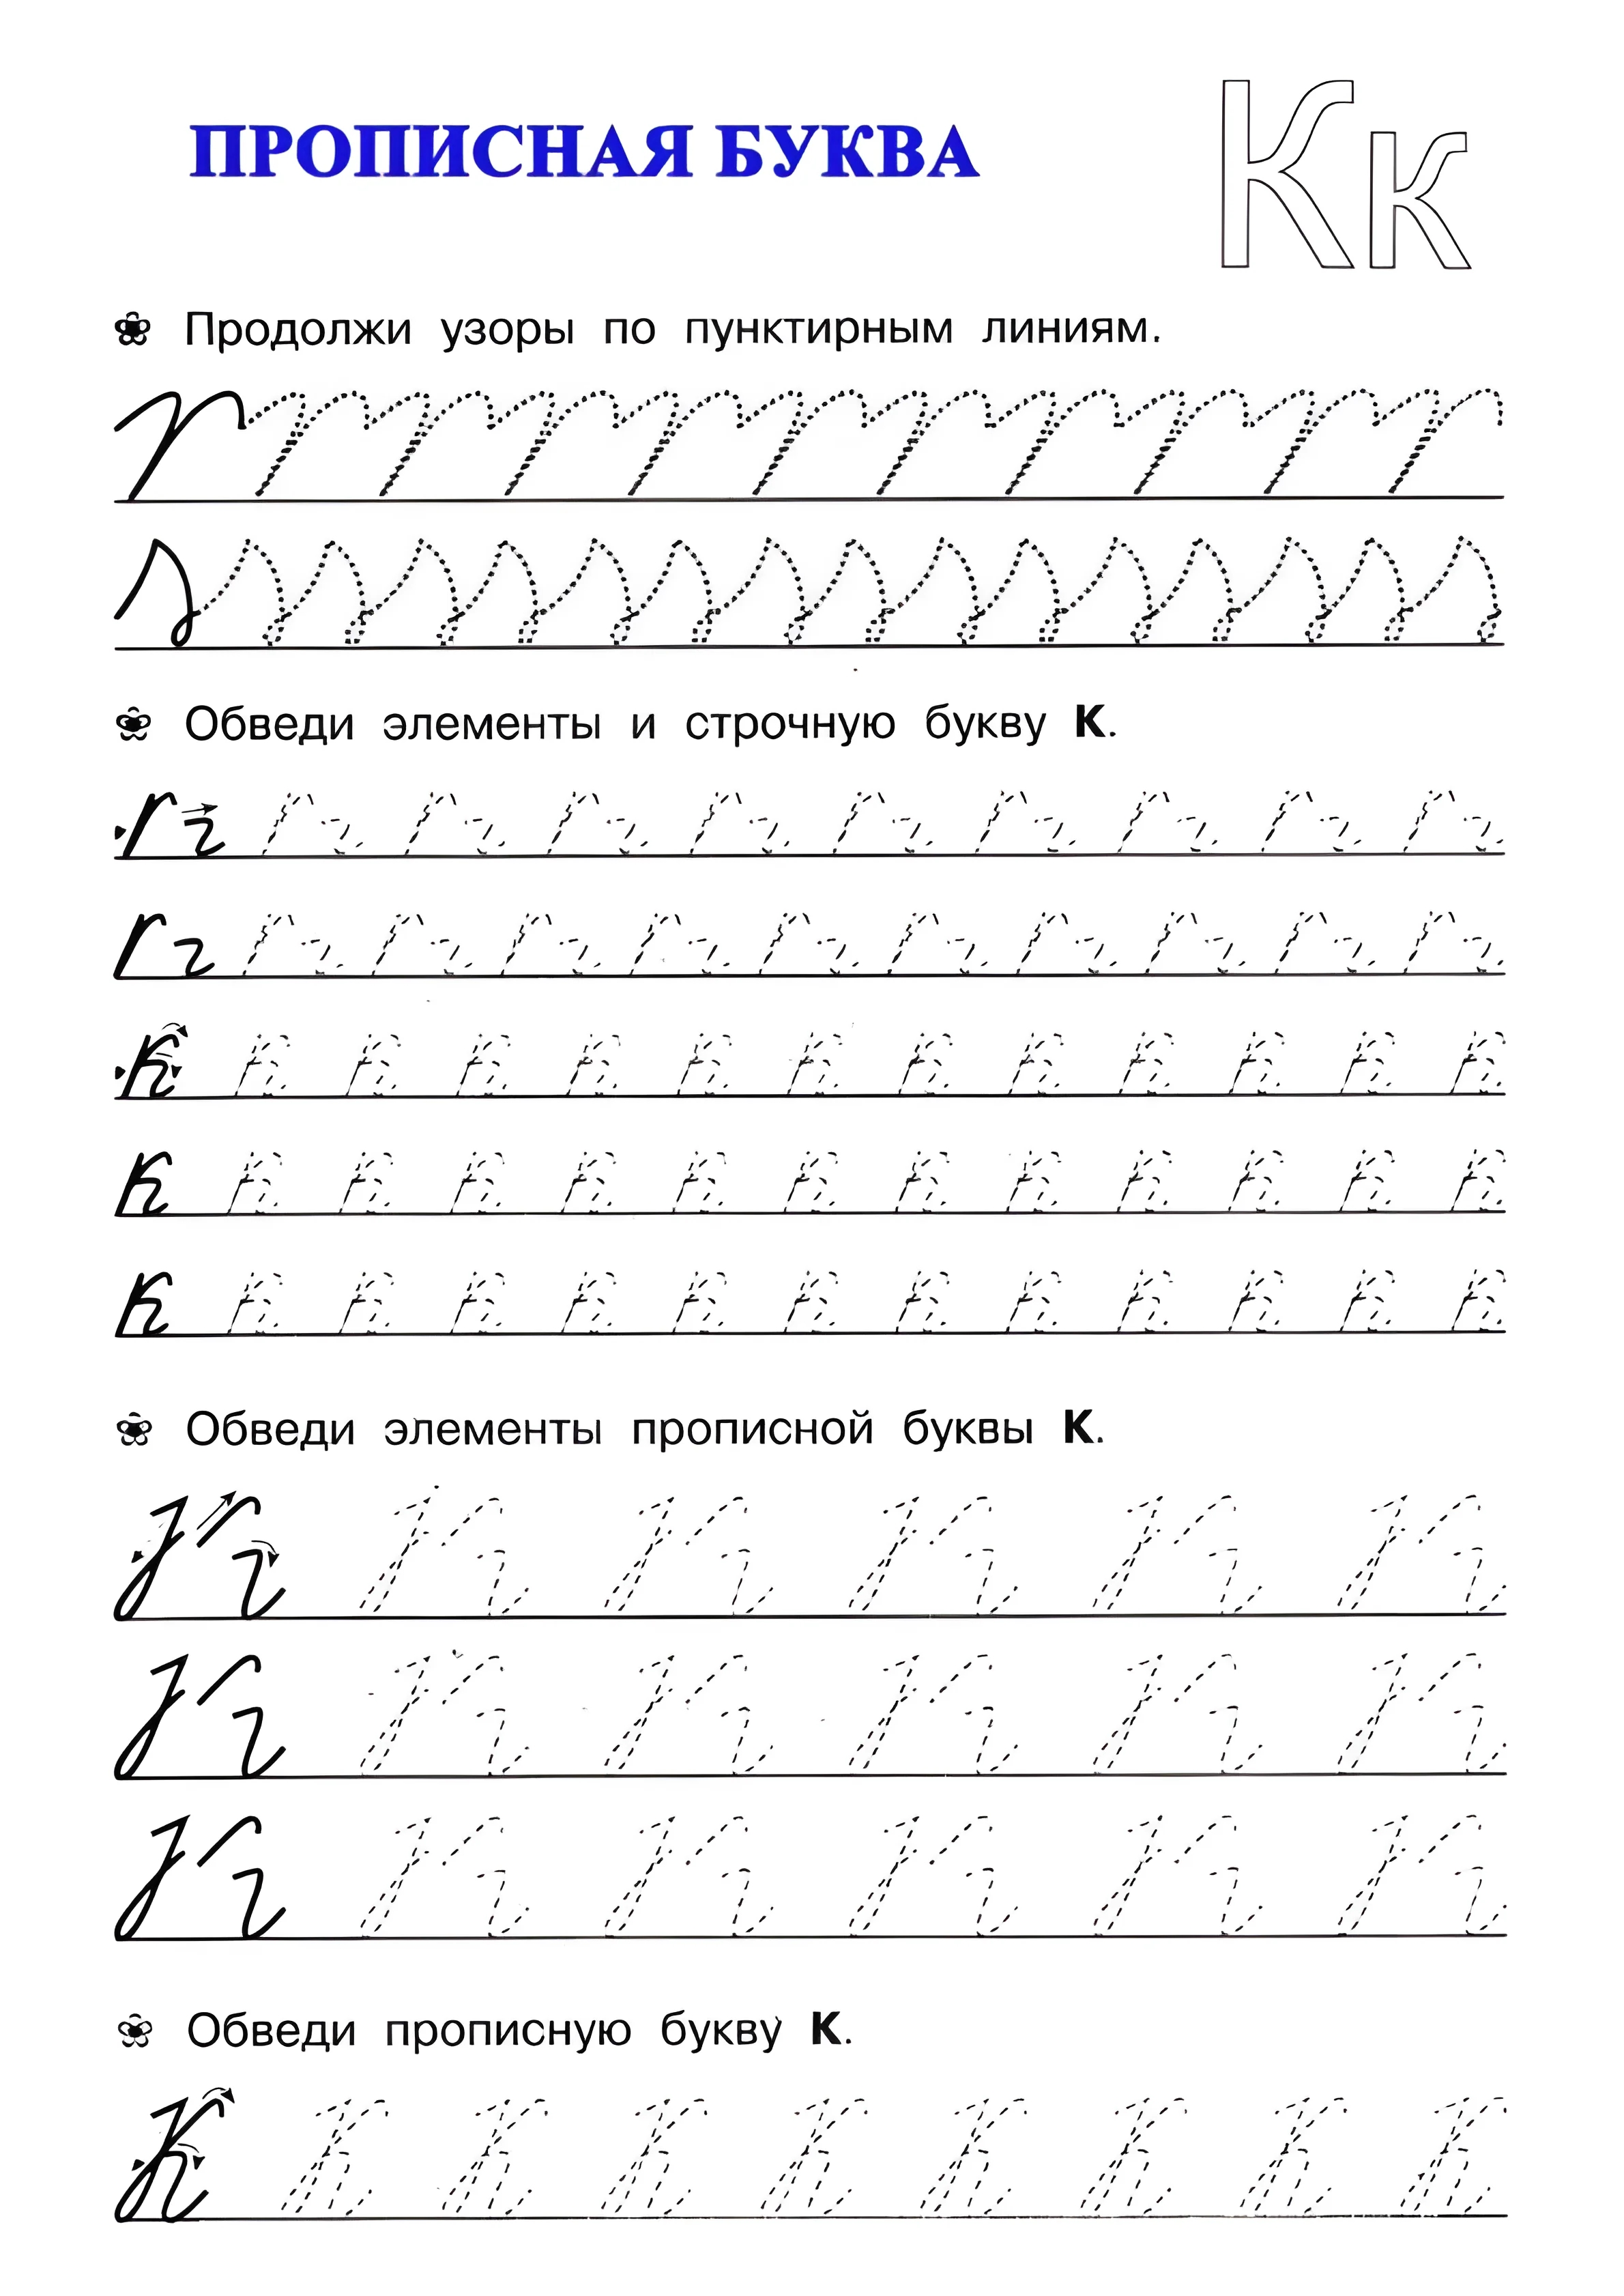 ПРОПИСНАЯ БУКВА
Кк
Продолжи узоры по пунктирным линиям.
Обведи элементы и строчную букву К.
к к к к к к к к к к к к к
к к к к к к к к к к к к к
к к к к к к к к к к к к к
Обведи элементы прописной буквы К.
Обведи прописную букву К.
К К К К К К К К К